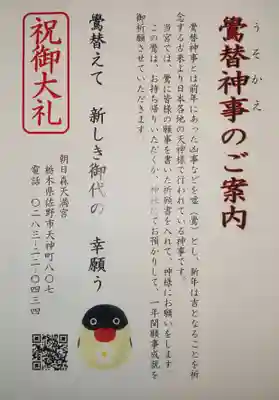 うそかえ
鷽替神事のご案内
鷽替神事とは前年にあった凶事などを嘘(鷽)とし、新年は吉となることを祈
念する古来より日本各地の天神様で行われている神事です。
当宮では、鷽に皆様の願事を書いた祈願書を入れて、神様にお願いをします。
この鷽は、お持ち帰りいただくか、神社にてお預かりして、一年間願事成就を
御祈願させていただきます
鷽替えて 新しき御代の 幸願う
祝御大礼
朝日森天満宮
栃木県佐野市天神町八〇七
電話 〇二八三-二二-〇四三四